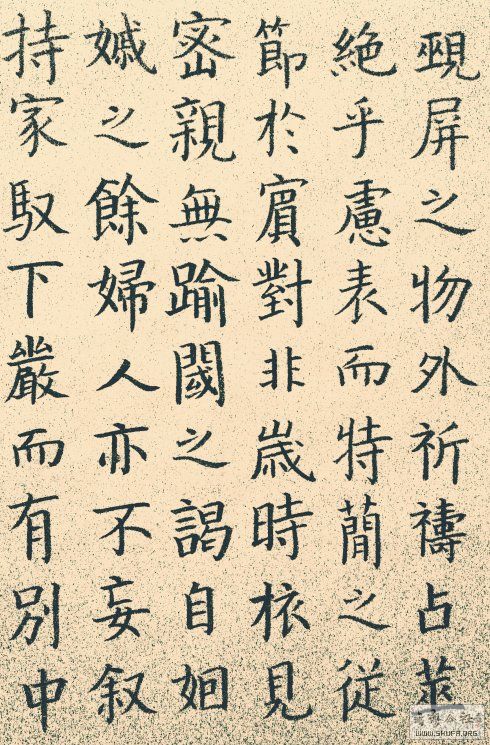 覡屏之物外祈禱占
絶乎慮表而特簡之從
節於賓對非歲時見
密親無踰閾之謁自姻
之餘婦人亦不妄叙
持家馭下嚴而有別中
www.skufa.org